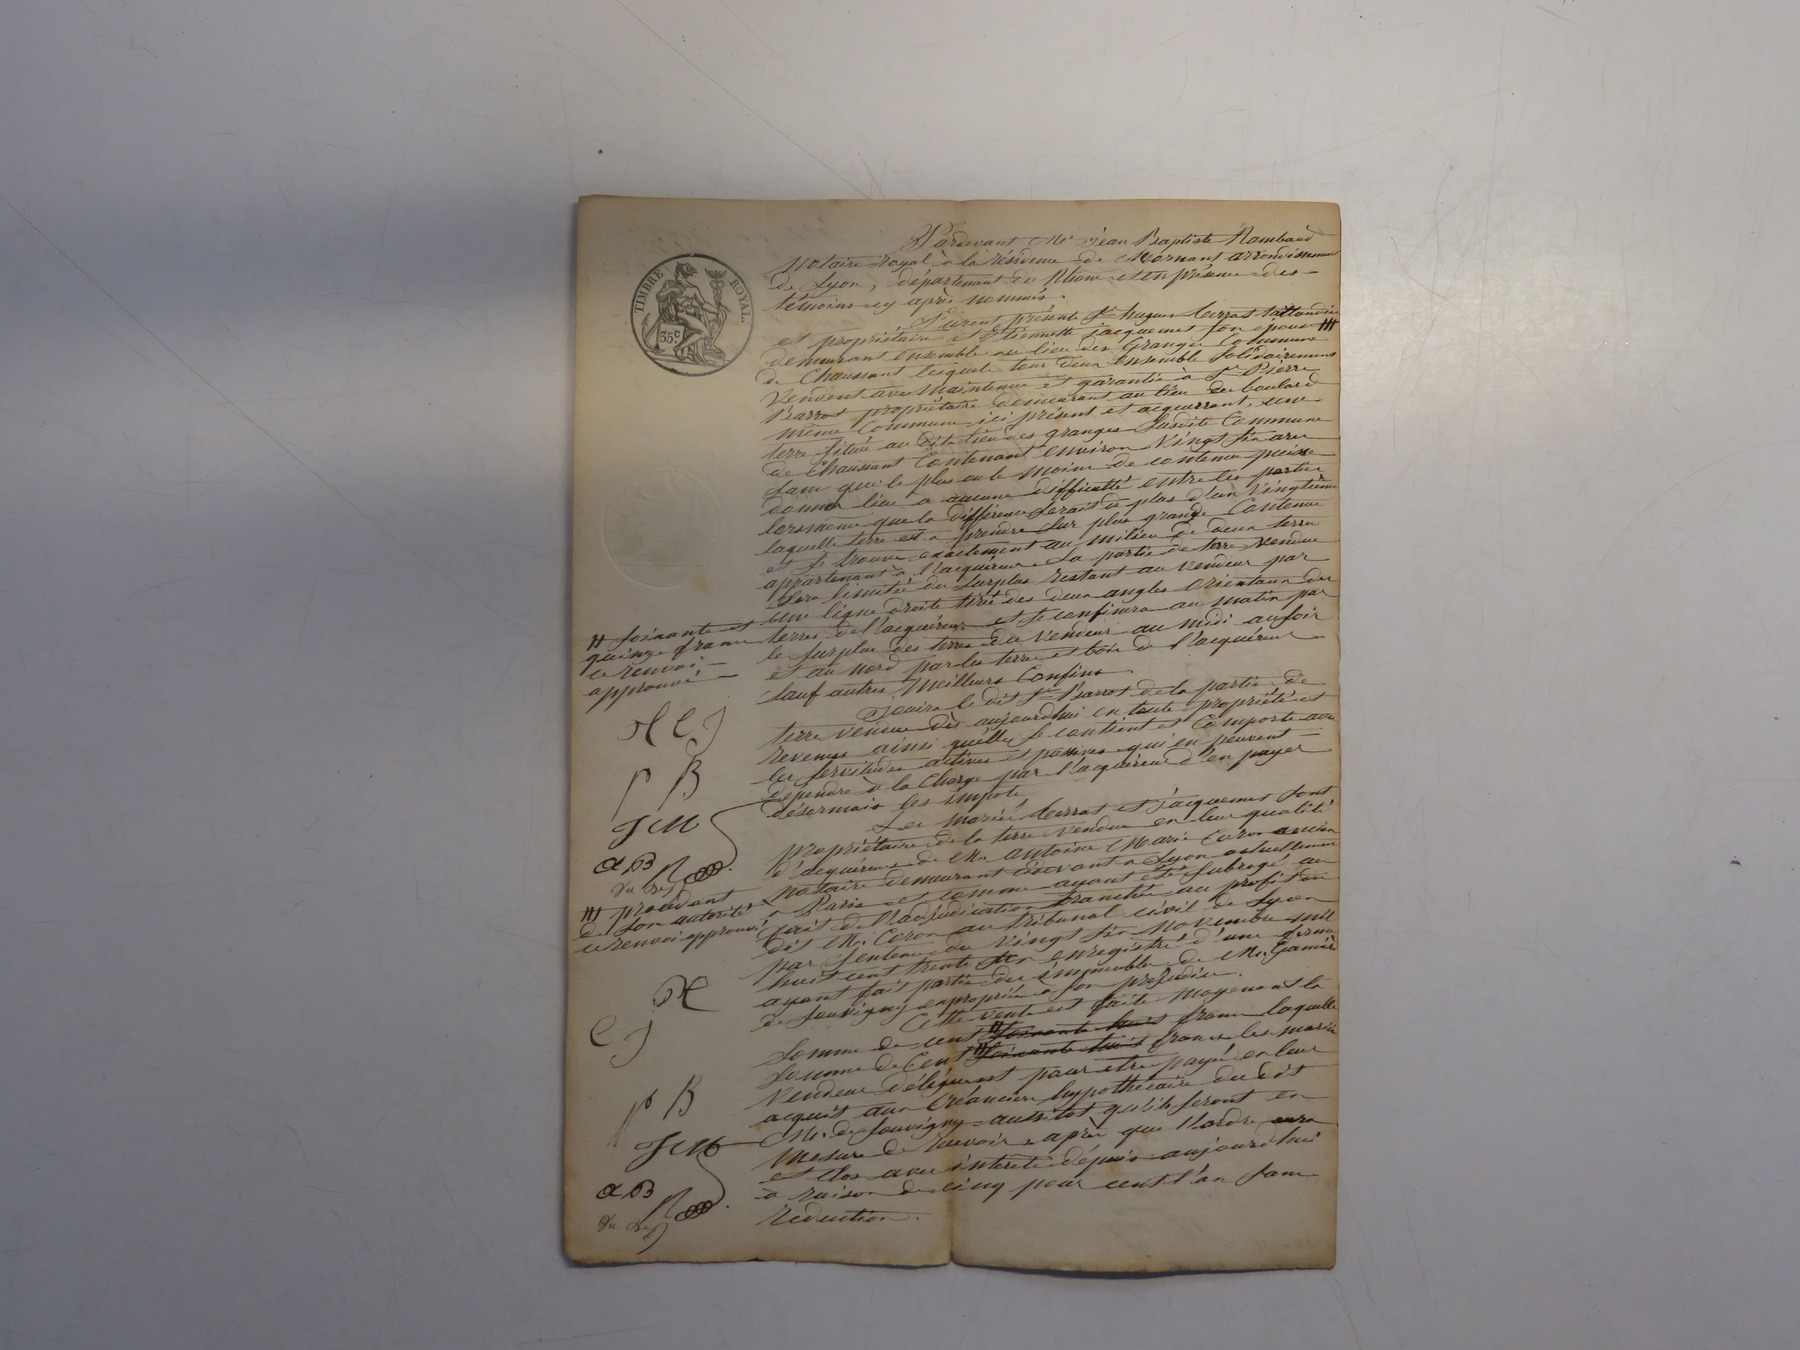 TIMBRE ROYAL.
35c
Pardevant Me Jean Baptiste Rambaud
Notaire royal à la résidence de Mornant arrondissement
de Lyon, département du Rhône et en présence des
témoins cy après nommés.
Furent présents Sr hugues
et propriétaire et Etiennette jacquemet son épouse ///
demeurant ensemble au lieu des Granges Commune
de Chaussant lesquels tous deux ensemble solidairement
Vendent avec Maintenue et garantie à Sr Pierre
Barrot propriétaire demeurant au lieu du boulard
même Commune ici présent et acquérant, une
terre située au dit lieu des granges susdite Commune
de Chaussant Contenant environ Vingt six ares
sans que le plus ou le moins de contenue puisse
donner lieu à aucune difficulté entre les parties
lorsmême que la différence serait de plus d'un Vingtième
laquelle terre est à prendre sur plus grande Contenue
et se trouve exactement au milieu de deux terres
appartenant à l'acquéreur. La partie de terre Vendue
sera limitée du surplus restant au vendeur par
une ligne droite tirée des deux angles Orientaux des
terres de l'acquéreur et se confinera au matin par
le surplus des terres du Vendeur au midi au soir
et au nord par les terres et bois de l'acquéreur
sauf autres Meilleurs Confins.
Jouira le dit Sr Barrot de la partie de
terre vendue dès aujourdhui en toute propriété et
revenus ainsi qu'elle se contient et Comporte avec
les servitudes actives et passives qui en peuvent
dépendre à la Charge par l'acquéreur d'en payer
désormais les impôts
Les mariés et jacquemet sont
propriétaires de la terre vendue en leur qualité
d'acquéreurs de Me antoine Marie Coron ancien
notaire demeurant cidevant à Lyon actuellement
à Paris et comme ayant été subrogé au
fait de l'adjudication tranchée au profit du
dit Me Coron au tribunal civil de Lyon
par sentence du Vingt six Novembre mil
huit cent trente enregistré d'une ferme
ayant fait partie des immeubles de Mr.
de Souvigny expropriés à son préjudice.
Cette vente est faite Moyennant la
somme de cent // soixante huit francs laquelle
somme de Cent // soixante huit francs les mariés
Vendeurs délèguent pour être payé en leur
acquit aux Créanciers hypothécaires du dit
Mr. de Souvigny aussitot qu'ils seront en
Mesure de recevoir et après que l'ordre sera
et clos avec intérêts depuis aujourd'hui
à raison de cinq pour cent l'an sans
reduction.
// soixante et
quinze francs
ce renvoi
approuvé
H C J
p B
JCM
AB
/// procedant
de son autorité
ce renvoi approuvé
H
C J
p B
JCM
AB